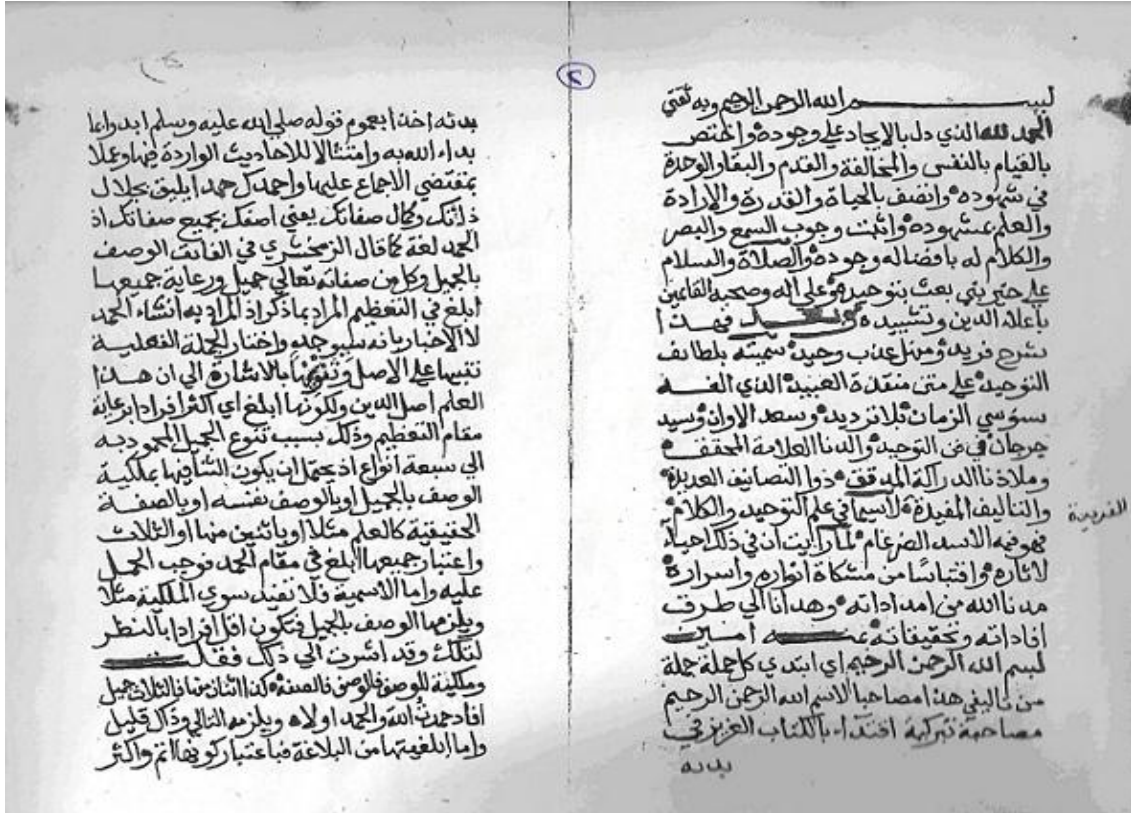 بسم الله الرحمن الرحيم وبه ثقتي
الحمد لله الذي دل بالايجاد على وجوده والمختص
بالقيام بالنفس والمخالفة والقدم والبقا والوحدة
في شهوده واتصف بالحياة والقدرة والارادة
والعلم بمشهوده واثبت وجوب السمع والبصر
والكلام له بافضاله وجوده والصلاة والسلام
على خير نبي بعث بتوحيده وعلى اله وصحبه القائمين
باعلاء الدين وتشييده وبعد فهذا
شرح فريد ومنهل عذب وحيد سميته بلطائف
التوحيد على متن منقذة العبيد الذي الفه
سنوسي الزمان بلا ترديد وسعد الاوان وسيد
جرجان في فن التوحيد والدنا العلامة المحقق
وملاذنا الدراكة المدقق ذوا التصانيف العديدة
والتاليف المفيدة لاسيما في علم التوحيد والكلام
الفريدة
فهو فيه الاسد الضرغام لما رايت ان في ذلك احياء
لاثاره واقتباسا من مشكاة انواره واسراره
مدنا الله من امداداته وهدانا الي طرف
افاداته وتحقيقاته بمنه امين
بسم الله الرحمن الرحيم اي ابتدي كل جملة جملة
من تاليفي هذا مصاحبا لاسم الله الرحمن الرحيم
مصاحبة تبركية اقتداء بالكتاب العزيز في
بدئه
٢
بدئه اخذا بعموم قوله صلي الله عليه وسلم ابدوا بما
بداء الله به وامتثالا للاحاديث الواردة فيها وعملا
بمقتضي الاجماع عليها واحمدك حمدا يليق بجلال
ذاتك وكمال صفاتك يعني اصفك بجميع صفاتك اذ
الحمد لغة كما قال الزمخشري في الفائق الوصف
بالجميل وكل من صفاته تعالي جميل ورعاية جميعها
ابلغ في التعظيم المراد بما ذكر اذ المراد به انشاء الحمد
لا الاخبار بانه سيوجد واختار الجملة الفعلية
تنبيها على الاصل وتنويها بالاشارة الي ان هذا
العلم اصل الدين ولكونها ابلغ اي اكثر افرادا برعاية
مقام التعظيم وذلك بسبب تنوع الجميل المحمود به
الي سبعة انواع اذ يحتمل ان يكون الثنا بها بملكية
الوصف بالجميل او بالوصف نفسه او بالصفة
الحقيقية كالعلم مثلا او باثنين منها او الثلاث
واعتبار جميعها ابلغ في مقام الحمد فوجب الحمل
عليه واما الاسمية فلا تفيد سوي الملكية مثلا
ويلزمها الوصف بالجميل فتكون اقل افرادا بالنظر
لتلك وقد اشرت الي ذلك فقلت
وملكية للوصف فالوصف فالصفة كذا اثنان منها فالثلاث جميل
افاد حمدت الله والحمد اولاه ويلزمه التالي وذاك قليل
واما ابلغيتها من البلاغة فباعتبار كونها اتم واكثر